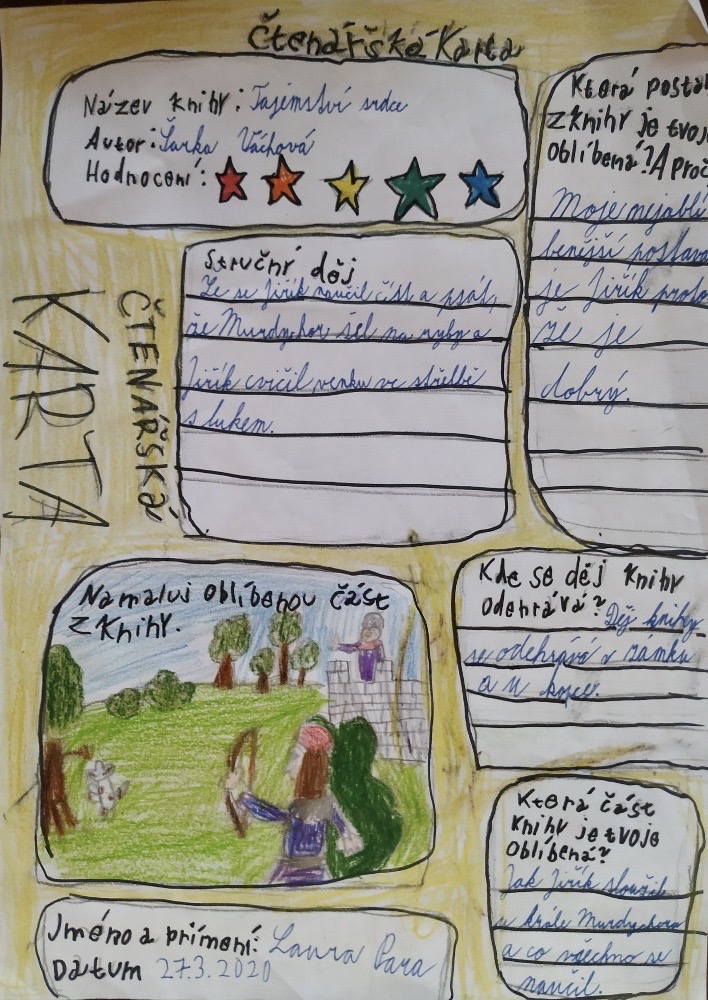 Čtenářská Karta
Název knihy: Tajemství srdce
Autor: Šárka Váchová
Hodnocení:
Která posta
z knihy je tvoje
oblíbená? A proč
Moje nejoblí
benější postava
je Jiřík proto
že je
dobrý.
Stručný děj
Že se Jiřík naučil číst a psát,
že Murdychor šel na ryby a
Jiřík cvičil venku ve střelbě
s lukem.
ČTENÁŘSKÁ
KARTA
Namaluj oblíbenou část
z knihy.
Kde se děj knihy
odehrává? Děj knihy
se odehrává v zámku
a u kopce.
Která část
knihy je tvoje
oblíbená?
Jak Jiřík sloužil
u krále Murdychora
a co všechno se
naučil.
Jméno a přímení: Laura Para
Datum 27.3.2020